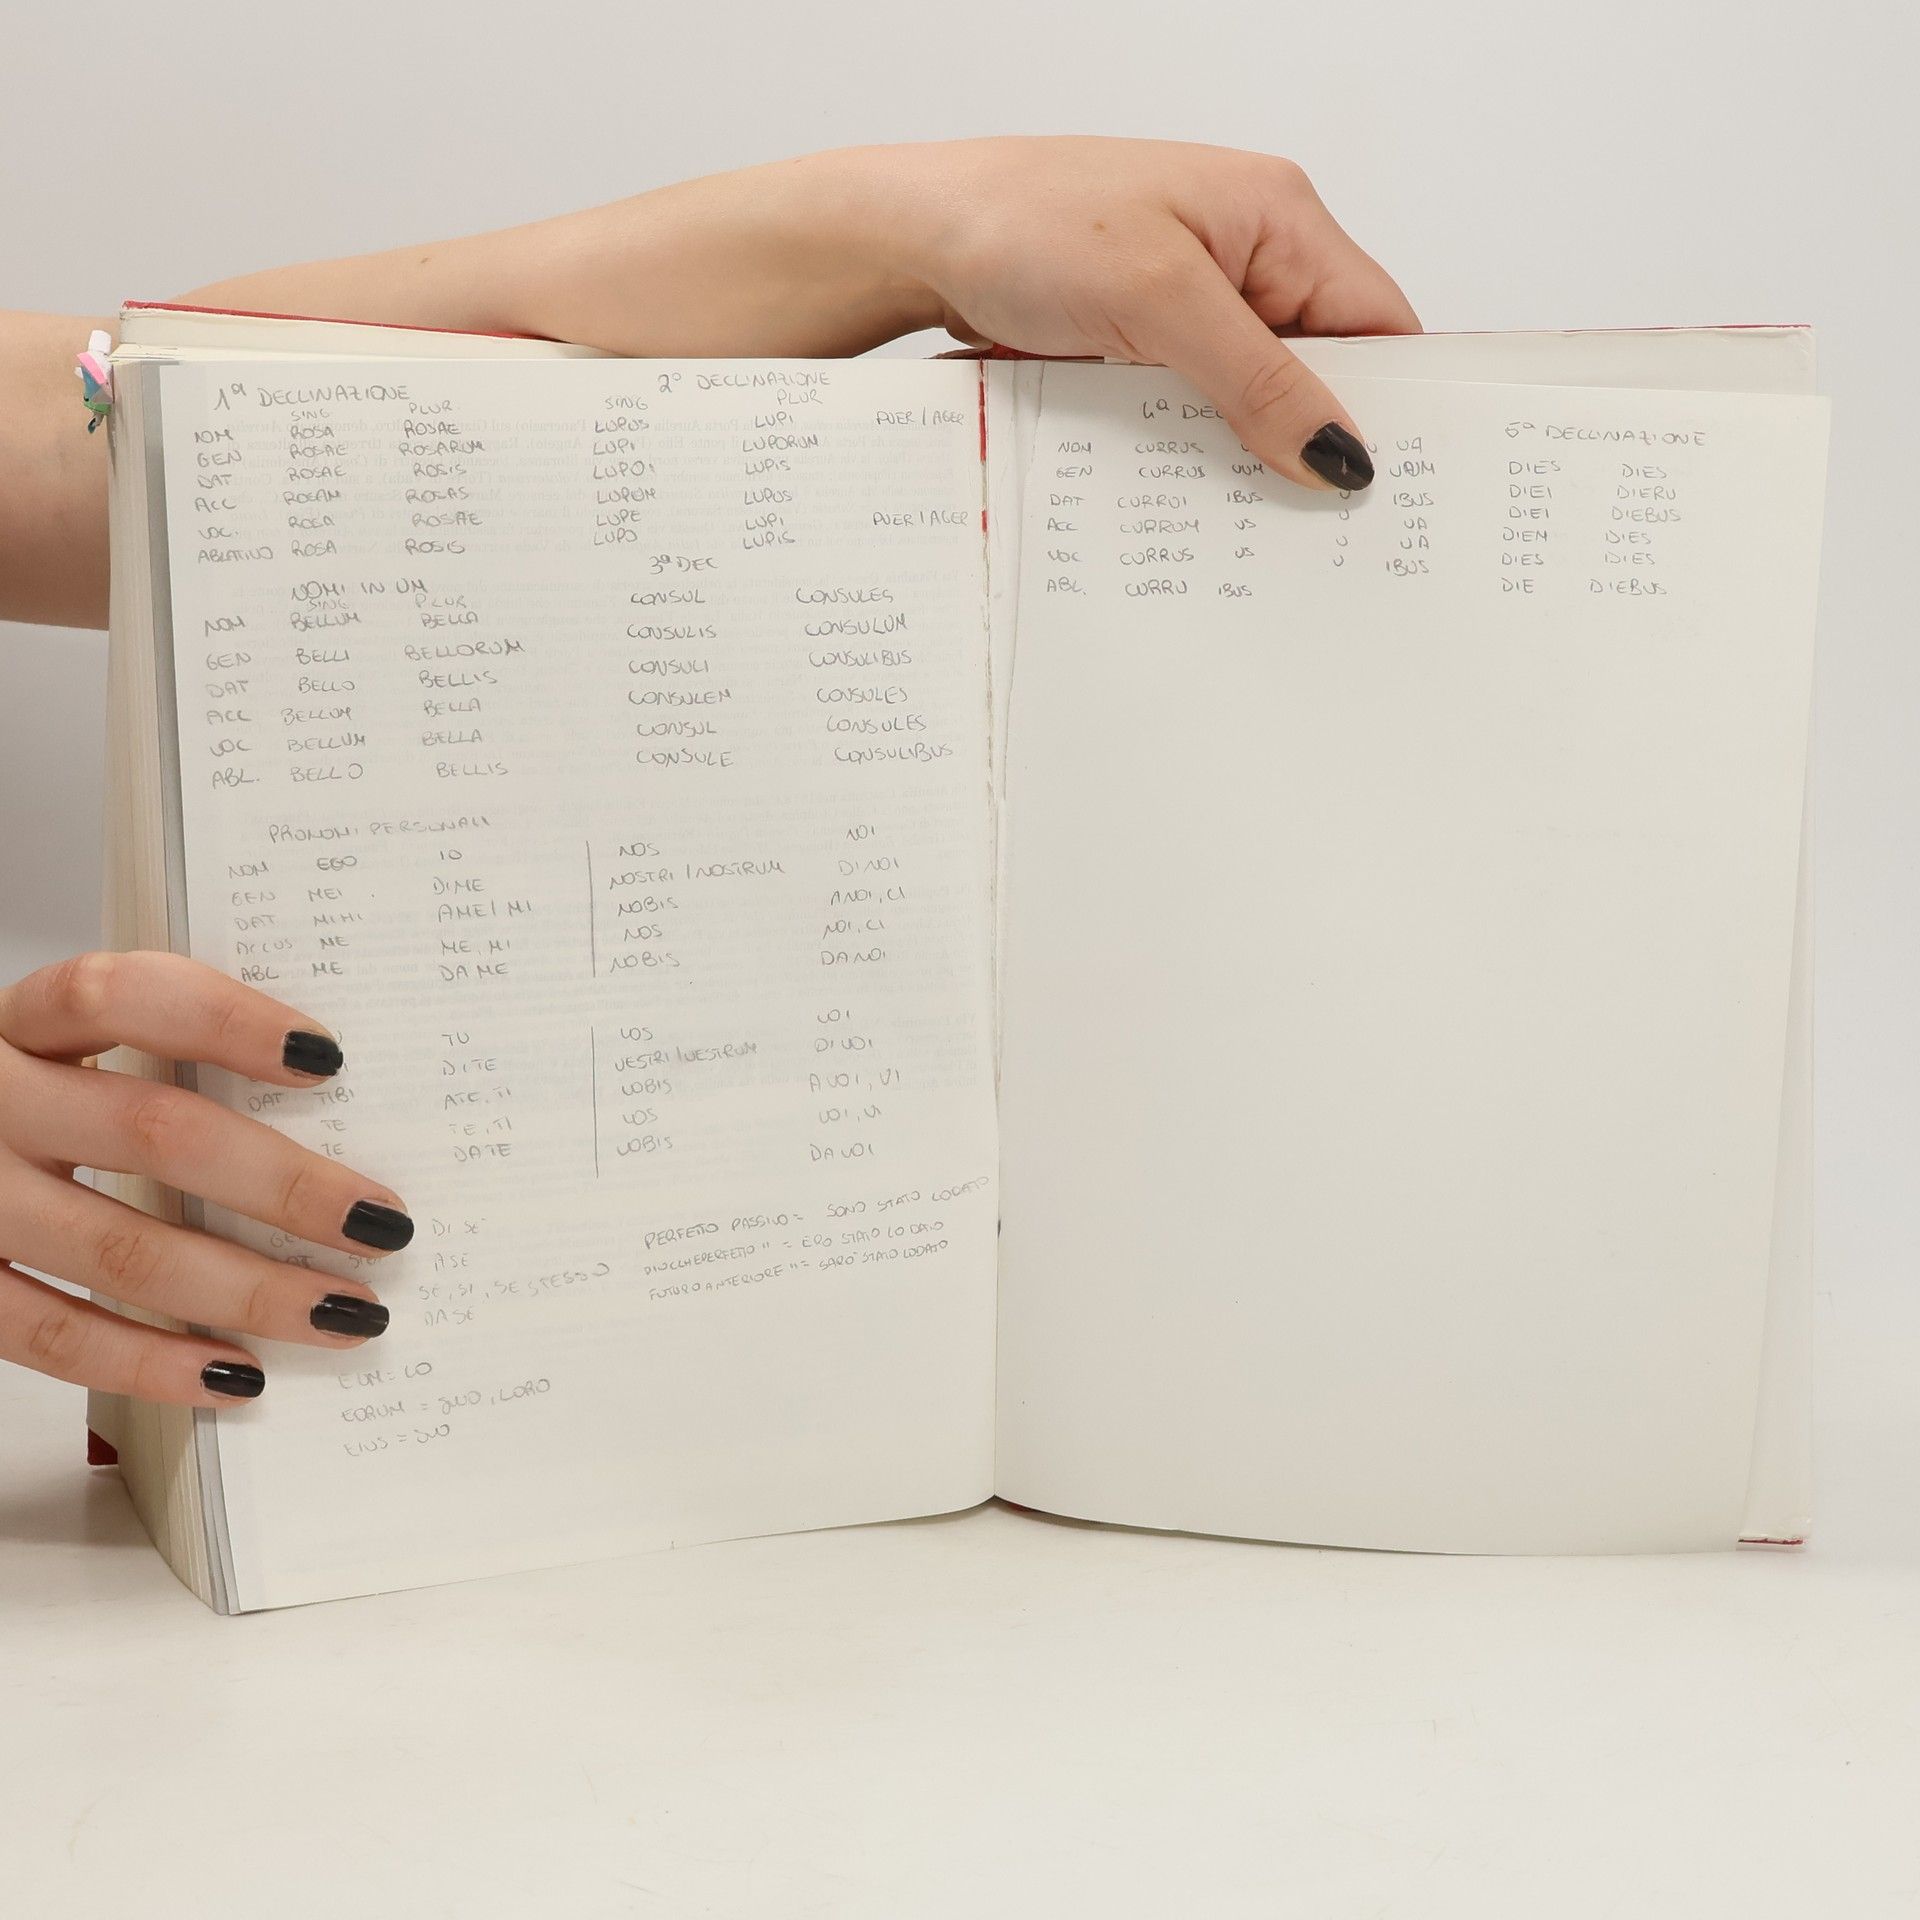 1ª DECLINAZIONE
SING PLUR.
NOM ROSA ROSAE
GEN ROSAE ROSARUM
DAT ROSAE ROSIS
ACC ROSAM ROSAS
VOC. ROSA ROSAE
ABLATIVO ROSA ROSIS
2ª DECLINAZIONE
SING PLUR
LUPUS LUPI PUER / AGER
LUPI LUPORUM
LUPO LUPIS
LUPUM LUPOS
LUPE LUPI PUER / AGER
LUPO LUPIS
NOMI IN UM
SING PLUR
NOM BELLUM BELLA
GEN BELLI BELLORUM
DAT BELLO BELLIS
ACC BELLUM BELLA
VOC BELLUM BELLA
ABL. BELLO BELLIS
3ª DEC
CONSUL CONSULES
CONSULIS CONSULUM
CONSULI CONSULIBUS
CONSULEM CONSULES
CONSUL CONSULES
CONSULE CONSULIBUS
PRONOMI PERSONALI
NOM EGO IO NOS NOI
GEN MEI DI ME NOSTRI / NOSTRUM DI NOI
DAT MIHI A ME / MI NOBIS A NOI, CI
ACCUS ME ME, MI NOS NOI, CI
ABL ME DA ME NOBIS DA NOI
TU VOS VOI
DI TE VESTRI / VESTRUM DI VOI
DAT TIBI A TE, TI VOBIS A VOI, VI
TE TE, TI VOS VOI, VI
TE DA TE VOBIS DA VOI
DI SE
A SE
SE, SI, SE STESSO
DA SE
PERFETTO PASSIVO = SONO STATO LODATO
PIUCCHEPERFETTO " = ERO STATO LODATO
FUTURO ANTERIORE " = SARO' STATO LODATO
EUM = LO
EORUM = SUO, LORO
EIUS = SUO
4ª DEC
NOM CURRUS U UA
GEN CURRUS UUM UUM
DAT CURRUI IBUS U IBUS
ACC CURRUM US U UA
VOC CURRUS US U UA
ABL. CURRU IBUS U IBUS
5ª DECLINAZIONE
DIES DIES
DIEI DIERU
DIEI DIEBUS
DIEM DIES
DIES DIES
DIE DIEBUS